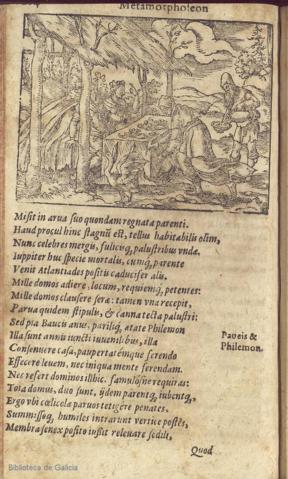 Metamorphoſeon
Miſit in arua ſuo quondam regnata parenti.
Haud procul hinc ſtagnũ eſt, tellus habitabilis olim,
Nunc celebres mergis, fulicisq; paluſtribus vndæ.
Iuppiter huc ſpecie mortali, cumq; parente
Venit Atlantiades poſitis caducifer alis.
Mille domos adiere, locum, requiemq; petentes:
Mille domos clauſere ſeræ: tamen vna recepit,
Parua quidem ſtipulis, & canna tecta paluſtri:
Sed pia Baucis anus, pariliq; ætate Philemon
Illa ſunt annis iuncti iuuenilibus, illa
Paucis &
Philemon.
Conſenuere caſa, paupertatémque ferendo
Effecere leuem, nec iniqua mente ferendam.
Nec refert dominos illhic, famulósne requiras:
Tota domus, duo ſunt, ijdem parentq; iubentq;
Ergo vbi cœlicolæ paruos tetigere penates,
Summiſſoq; humiles intrarunt vertice poſtes,
Membra ſenex poſito iuſſit releuare ſedili,
Quod
Biblioteca de Galicia